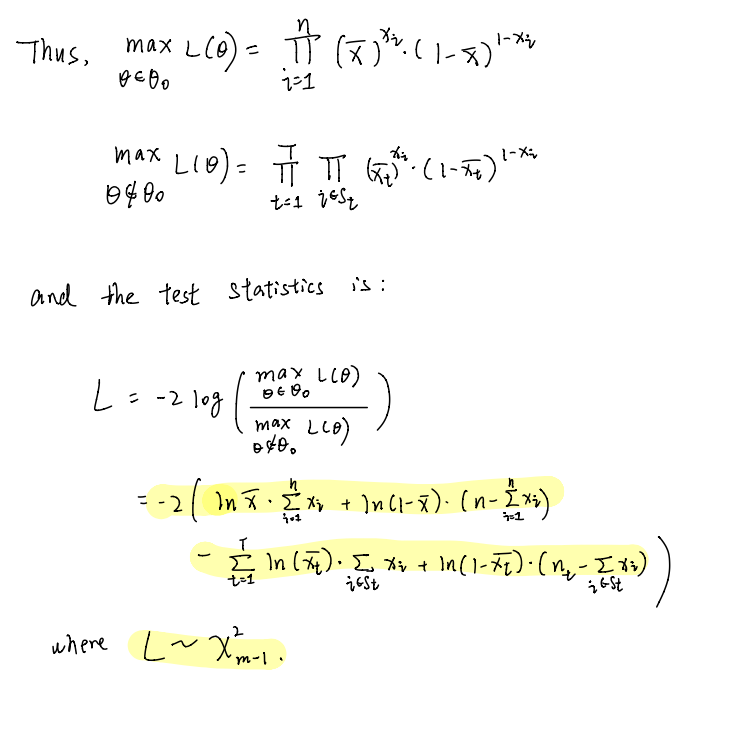 Thus, max_{θ∈θ₀} L(θ) = ∏_{i=1}^{n} (x̄)^{x_i} · (1-x̄)^{1-x_i}
max_{θ∉θ₀} L(θ) = ∏_{t=1}^{T} ∏_{i∈S_t} (x̄_t)^{x_i} · (1-x̄_t)^{1-x_i}
and the test statistics is :
L = -2 log ( max_{θ∈θ₀} L(θ) / max_{θ∉θ₀} L(θ) )
= -2 ( ln x̄ · ∑_{i=1}^{n} x_i + ln(1-x̄) · (n - ∑_{i=1}^{n} x_i)
- ∑_{t=1}^{T} ln(x̄_t) · ∑_{i∈S_t} x_i + ln(1-x̄_t) · (n_t - ∑_{i∈S_t} x_i) )
where L ~ χ²_{m-1} .